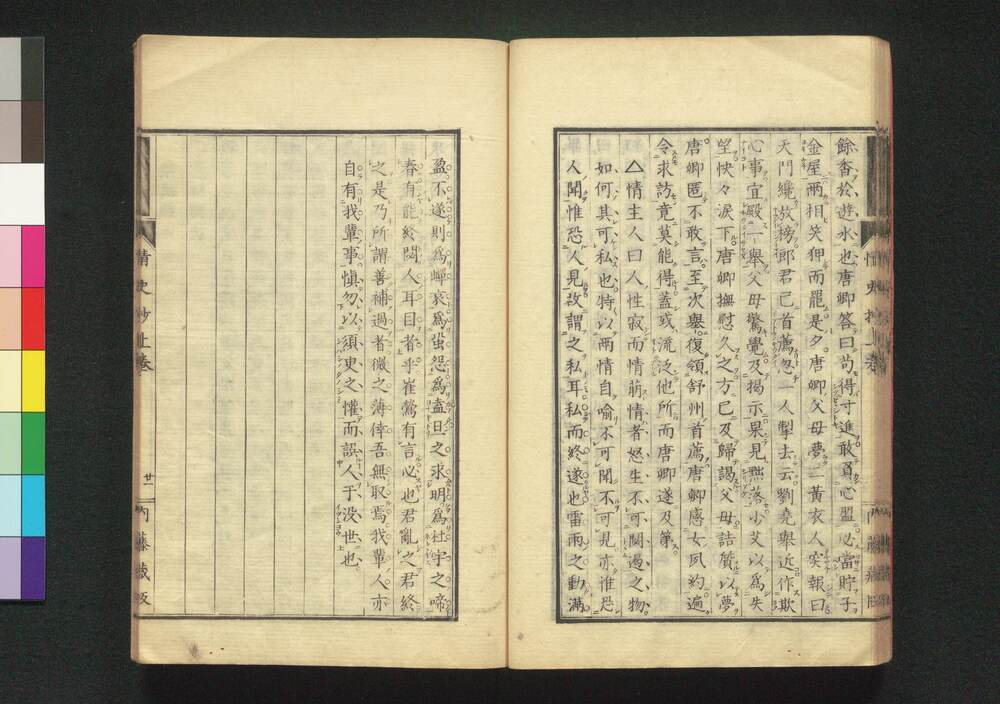 餘香於遊水也唐卿答曰苟得寸進敢負心盟必當貯子
金屋兩相笑狎而罷是夕唐卿父母夢二黃衣人突報曰
天門纔放榜郎君已首薦忽一人掣去云劉堯舉近作欺
心事宜殿一舉父母驚覺及揭示果見黜落少艾以為失
望怏々淚下唐卿撫慰久之方已及歸謁父母詰質以夢
唐卿匿不敢言至次舉復領舒州首薦唐卿感女夙約遍
令求訪竟莫能得蓋或流泛他所而唐卿遂及第
△情主人曰人性寂而情萌情者怒生不可閼遏之物
如何其可私也特以兩情自喻不可聞不可見亦惟恐
人聞惟恐人見故謂之私耳私而終遂也雷雨之動滿
盈不遂則為蟬哀為蛩怨為盍旦之求明為杜宇之啼
春有能終閟人耳目者乎崔鶯有言必也君亂之君終
之是乃所謂善補過者微之薄倖吾無取焉我輩人亦
自有我輩事愼勿以須臾之懽而誤人于没世也
情史抄上卷
廿一
内藤藏版